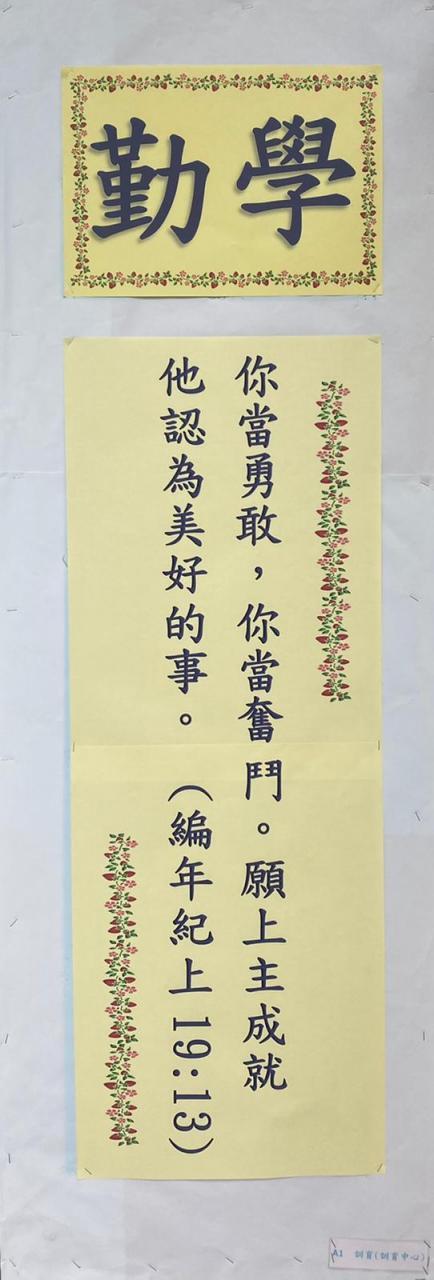 勤學
你當勇敢，你當奮鬥。願上主成就
他認為美好的事。（編年紀上 19:13）
A1 訓育(訓育中心)